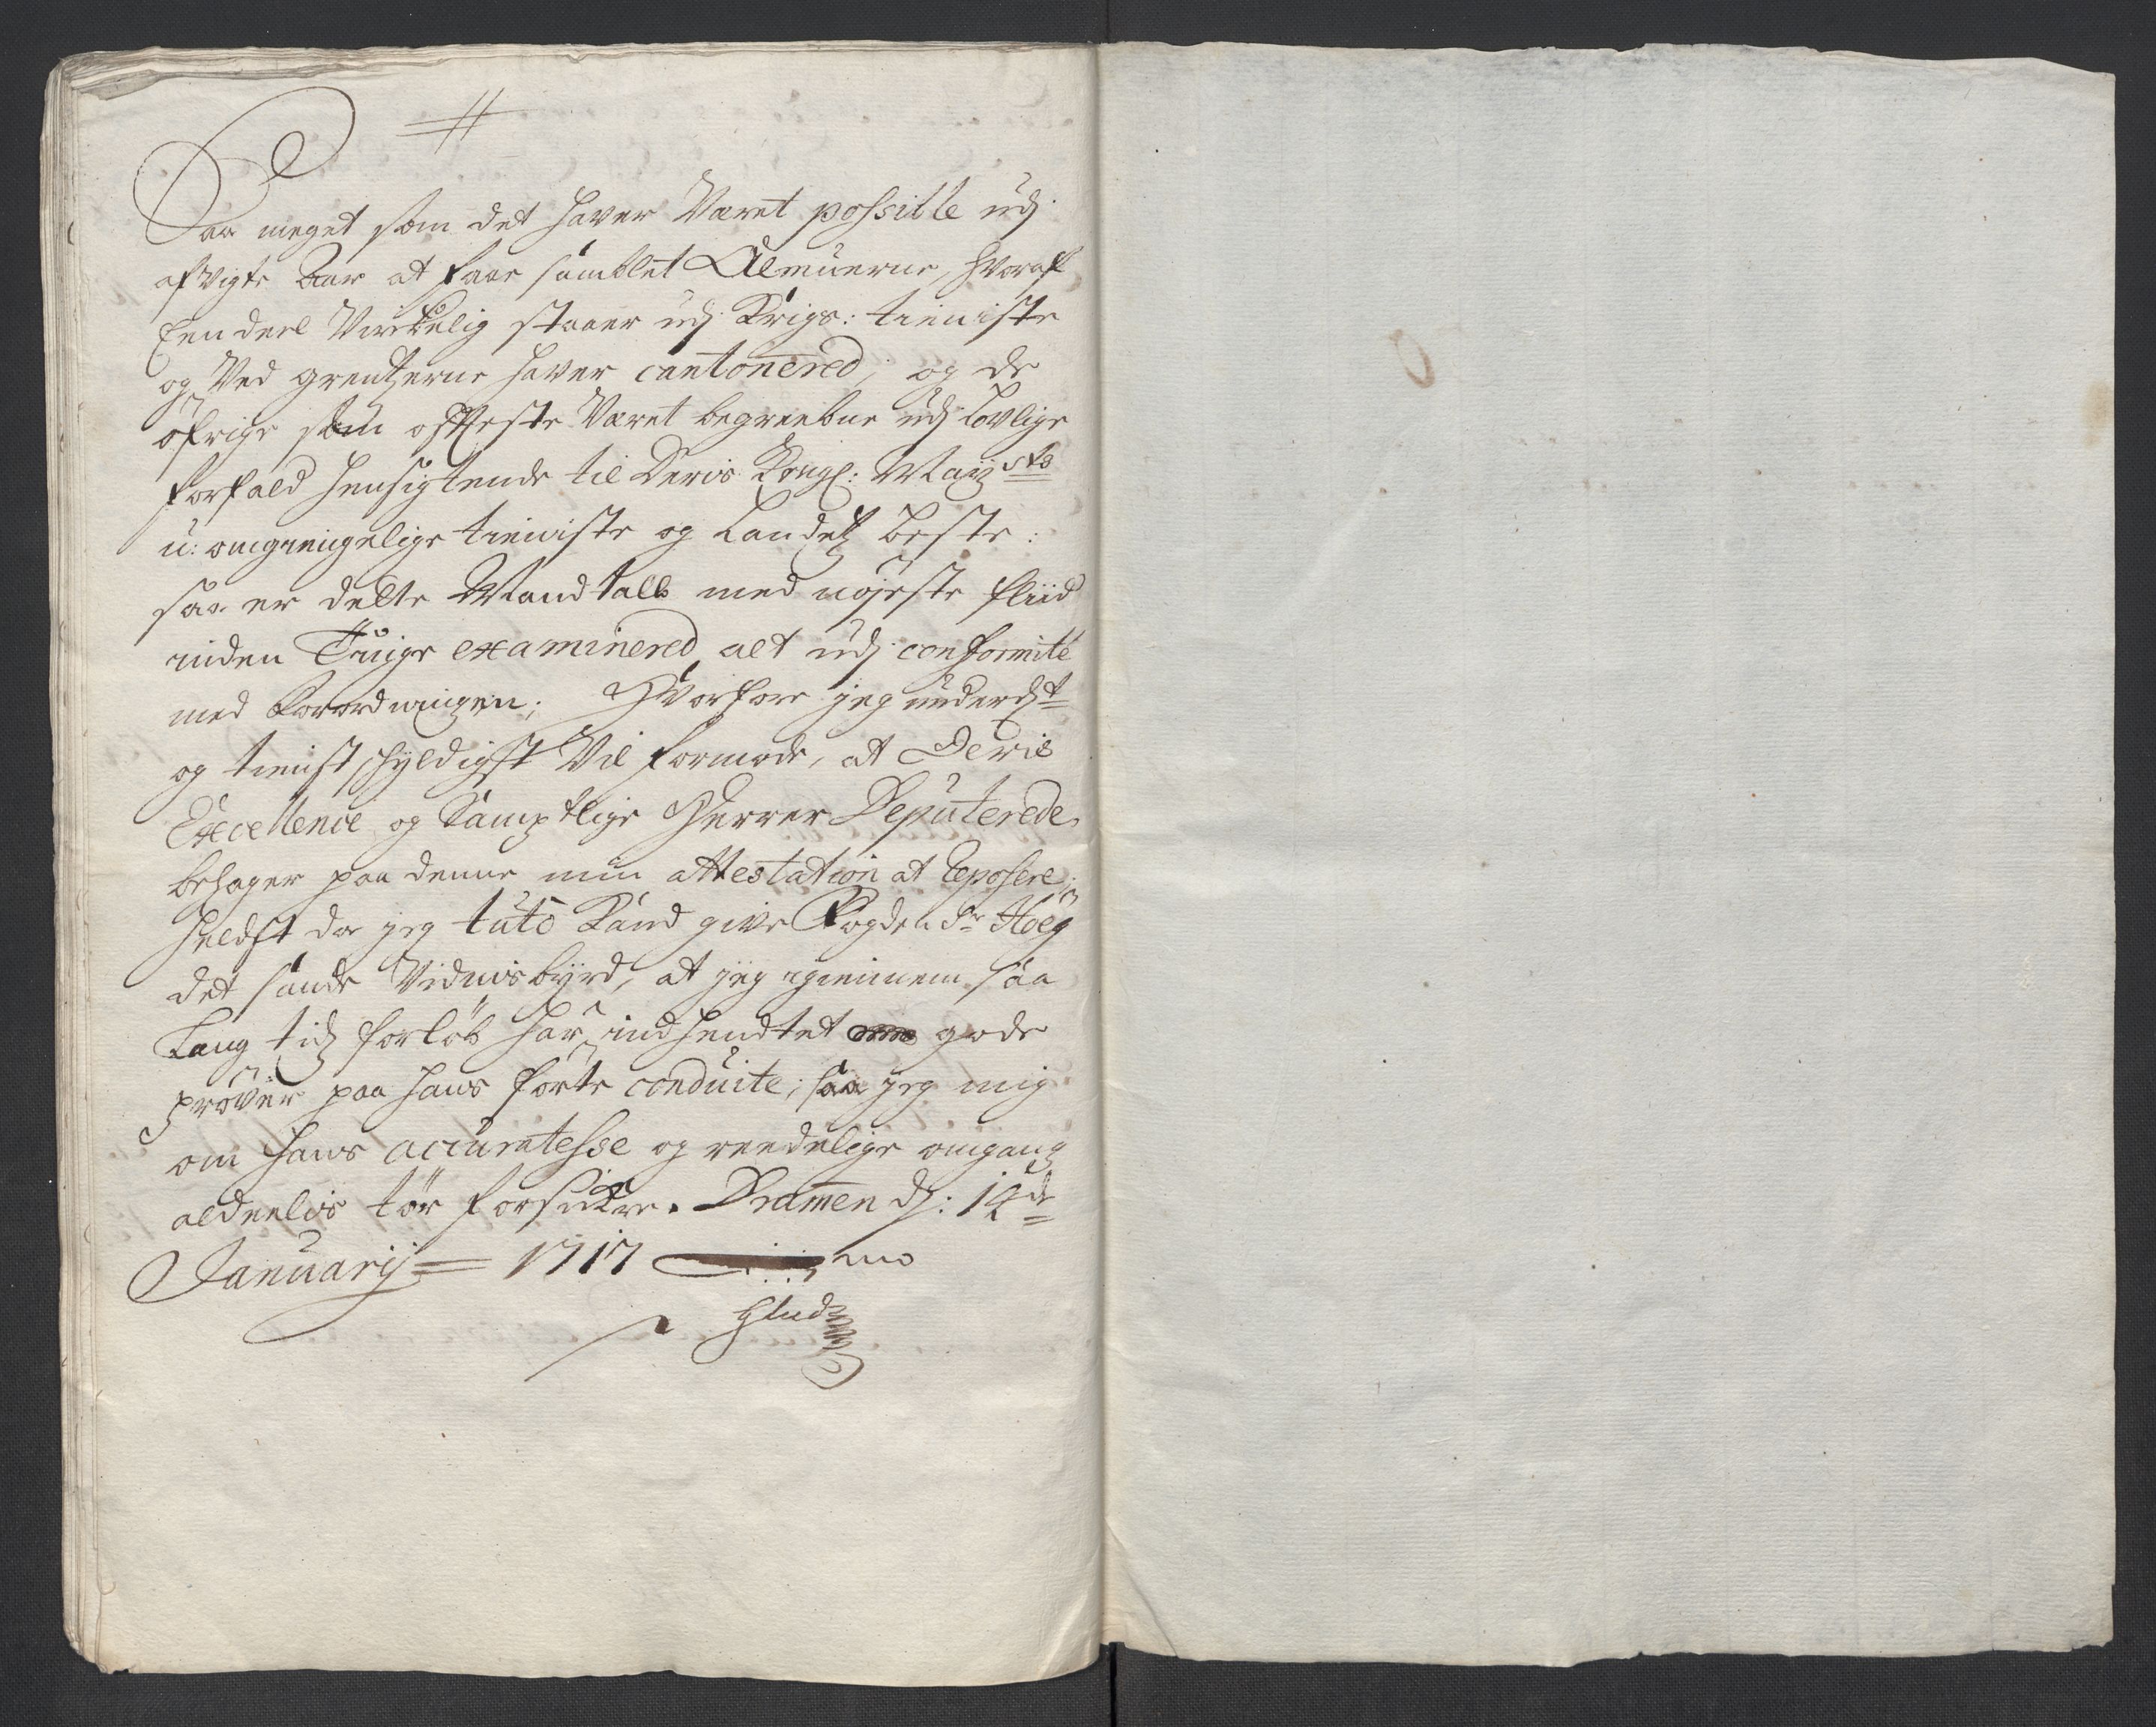 Saa meget som det haver Været possible udj
afvigte Aar at faae samblet Almuerne, hvoraf
Een deel Virkelig staaer udj Krigs: tieniste
og Ved grentzerne haver cantonered, og de
öfrige som oftteste Været begreebne udj Lovlige
forfald hensigtende til Deris Kongl: Maijsts
u: omgiengelige tieniste og Landetz beste:
saa er dette Mandtall med nöjeste fliid
inden Tinge examinered alt udj conformité
med Forordningen; Hvorfore jeg underdt
og tienistskyldigst Vil formode, at Deris
Excellence og Samptlige Herrer Deputerede
behager paa denne min attestation at reposere;
heldst da jeg tuto Kand give Fogden Sr Höeg
det sande Vidnisbyrd, at jeg igiennem saa
Lang tidz forlöb har indhendtet gode
pröver paa hans förte conduite; saa jeg mig
om hans accuratesse og reedelige omgang
aldeelis tör forsickre. Dramen dj: 14de
Januarij 1717
Glud